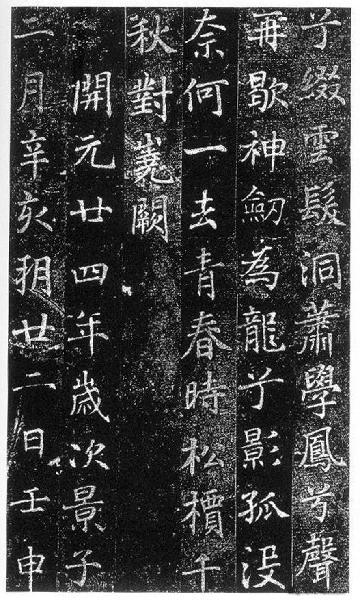 兮綴雲髮洞蕭學鳳兮聲
再歇神劒為龍兮影孤沒
奈何一去青春時松檟千
秋對闕
開元廿四年歲次景子
二月辛亥朔廿二日壬申